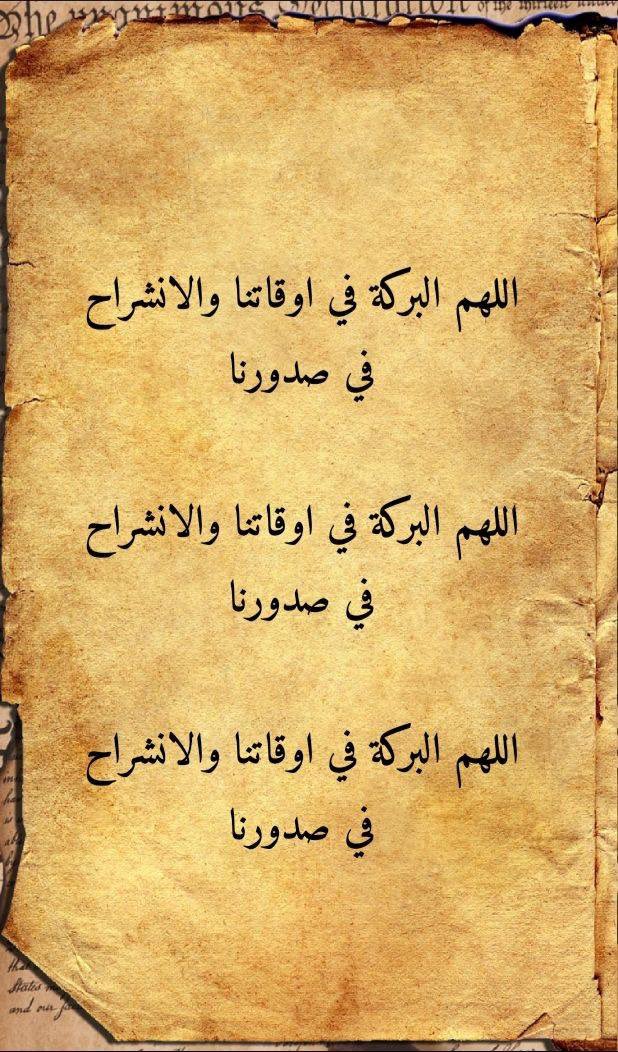 The unanimous Declaration of the thirteen united
اللهم البركة في اوقاتنا والانشراح
في صدورنا
اللهم البركة في اوقاتنا والانشراح
في صدورنا
اللهم البركة في اوقاتنا والانشراح
في صدورنا
that
States
and our